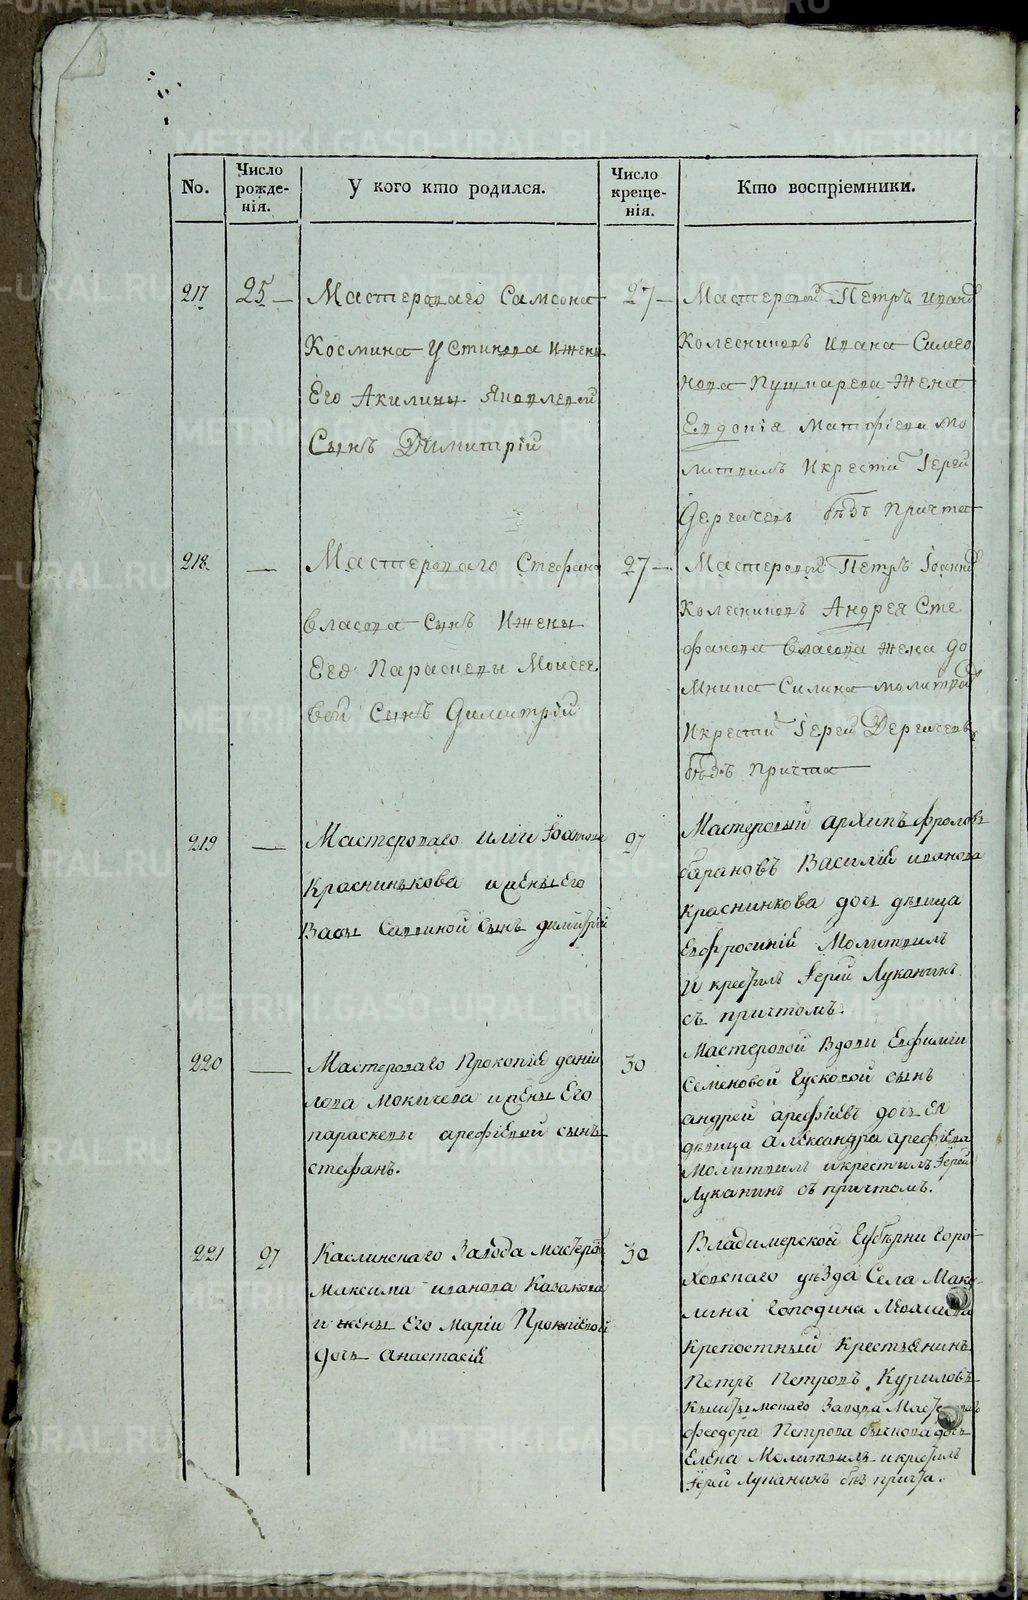 No.
Число рожде-
нія.
У кого кто родился.
Число креще-
нія.
Кто воспріемники.
217
25
Мастероваго Самсона
Космина Устинова и жены
Его Акилины Яковлевой
Сынъ Димитрій
27
Мастеровой Петръ Иванов
Колесниковъ Ивана Симео
нова Пушкарева жена
Евдокія Матфіева мо
литвилъ И крестил Іерей
Дергачевъ безъ Причта
218
—
Мастероваго Стефана
Власова Сынъ И жены
Его Параскевы Моисее
вой Сынъ Димитрій
27
Мастеровой Петръ Іоаннов
Колесниковъ Андрея Сте
фанова Власова жена До
мника Силина молитвов
И крестил Іерей Дергачевъ
безъ Причта
219
—
Мастероваго Иліи
Краснинькова и жены Его
Васы Савиной Сынъ Димитрій
27
Мастеровый Архипъ Фролов
Барановъ Василія Иванова
Краснинкова дочь девица
Евфросинія Молитвилъ
И крестилъ Іерей Луканинъ
съ причтомъ.
220
—
Мастероваго Прокопія Дани
лова Мокичева и жены Его
Параскевы Арефіевой сынъ
Стефанъ.
30
Мастеровой Вдовы Евфиміи
Семеновой Гусковой сынъ
Андрей Арефіевъ дочь ея
девица Александра Арефіева
Молитвилъ и крестилъ Іерей
Луканинъ съ причтомъ.
221
27
Каслинскаго Завода Мастеров
Максима Иванова Казакова
и жены Его Маріи Прокпіевой
Дочь Анастасія
30
Владимерской Губерни Горо-
ховскаго уезда Села Мак
лина Господина
Крепостный Крестьянинъ
Петръ Петровъ Куриловъ
Кыштымскаго Завода Маст
Феодора Петрова дочь
Елена Молитвилъ и крестилъ
Іерей Луканинъ без причта.
METRIKI.GASO-URAL.RU